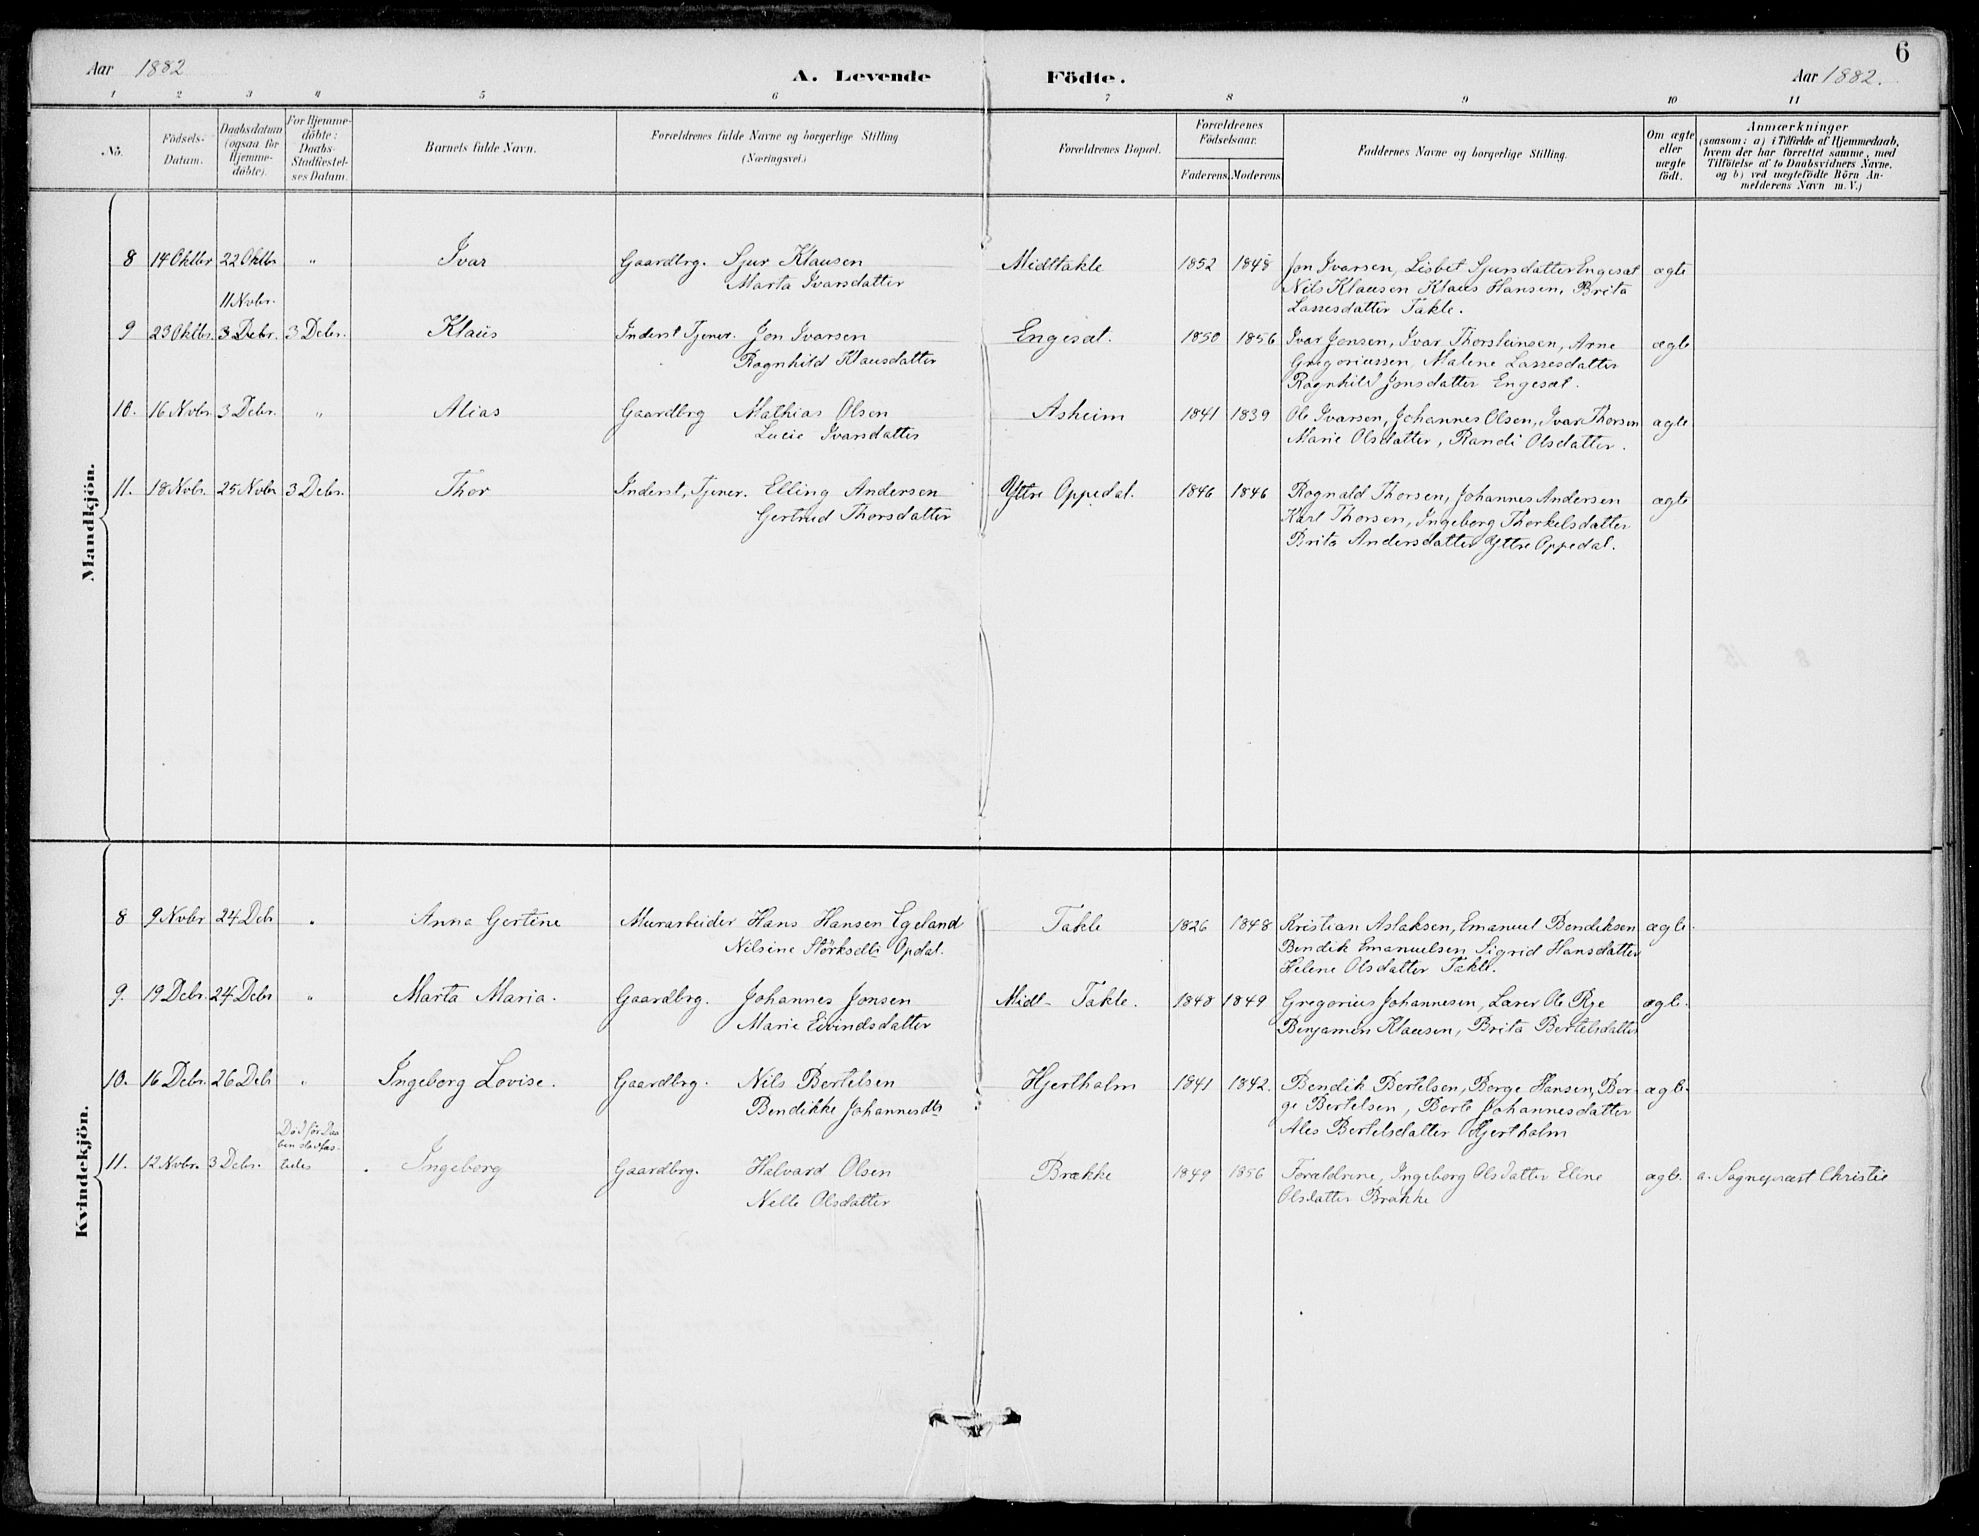 6
Aar 1882 A. Levende Födte. Aar 1882.
1 2 3 4 5 6 7 8 9 10 11
No. Födsels-Datum. Daabsdatum (ogsaa for Hjemme-döbte). For Hjemme-döbte: Daabs-Stadfæstel-ses Datum. Barnets fulde Navn. Forældrenes fulde Navne og borgerlige Stilling (Næringsvei.) Forældrenes Bopæl. Forældrenes Födselsaar. Faderens. Moderens. Faddernes Navne og borgerlige Stilling. Om ægte eller uægte födt. Anmærkninger (saasom: a) i Tilfælde af Hjemmedaab, hvem der har forrettet samme, med Tilföielse af to Daabsvidners Navne, og b) ved uægtefödte Börn An-melderens Navn m. V.)
Mandkjön.
8 14 Oktbr 22 Oktbr " Ivar Gaardbrg. Sjur Klausen Midttakle 1852 1848 Jon Ivarsen, Lisbet Sjursdatter Engesæt ægte
Marta Ivarsdatter Nils Klausen Klaus Hansen, Brita
Lassesdatter Takle.
11 Nvbr.
9 23 Oktbr. 3 Debr. 3 Debr. Klaus Inderst Tjener. Jon Ivarsen Engesæt. 1850 1856 Ivar Jonsen, Ivar Thorsteinsen, Arne ægte
Ragnhild Klausdatter Gregoriussen, Malene Lassesdatter
Ragnhild Jonsdatter Engesæt.
10. 16 Nvbr. 3 Debr. " Alias Gaardbrg Mathias Olsen Asheim 1841 1839 Ole Ivarsen, Johannes Olsen, Ivar Thorsen ægte
Lucie Ivarsdatter Marie Olsdatter, Randi Olsdatter.
11. 18 Nvbr. 25 Nvbr 3 Debr. Thor Inderst, Tjener. Elling Andersen Yttre Oppedal. 1846 1846 Rognald Thorsen, Johannes Andersen ægte
Gertrud Thorsdatter Karl Thorsen, Ingeborg Thorkelsdatter
Brita Andersdatter Yttre Oppedal.
Kvindekjön.
8 9 Nvbr 24 Deb " Anna Gertine Murarbeider Hans Hansen Egeland Takle 1826 1848 Kristian Aslaksen, Emanuel Bendiksen ægte.
Nilsine Störksdtr Opdal. Bendik Emanuelsen Sigrid Hansdatter
Helene Olsdatter Takle.
9. 19 Debr. 24 Debr " Marta Maria. Gaardbrg. Johannes Jonsen Midt-Takle. 1848 1849 Gregorius Johannesen, Lærer Ole Rye ægte.
Marie Eivindsdatter Benjamin Klausen, Brita Bertelsdatter
10. 16 Debr. 26 Deb " Ingeborg Lovise. Gaardbrg. Nils Bertelsen Hjertholm 1841 1842. Bendik Bertelsen, Borge Hansen, Bor- ægte.
Bendikke Johannesdtr ge Bertelsen, Berte Johannesdatter
Ales Bertelsdatter Hjertholm
Död før Daa
ben stadfæs-
tedes
11. 12 Nvbr. 3 Debr. Ingeborg Gaardbrg. Halvard Olsen Brække 1849 1856 Forældrene, Ingeborg Olsdatter Eline ægte. a. Sognepræst Christie
Nelle Olsdatter Olsdatter Brække